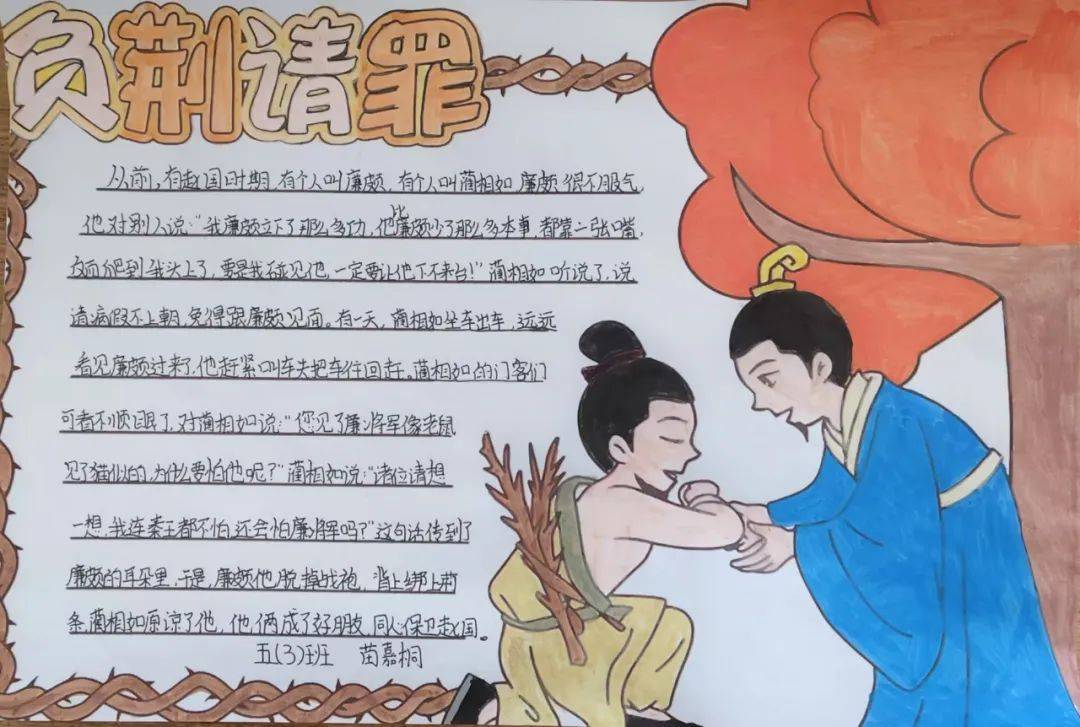 负荆请罪
从前,有赵国时期,有个人叫廉颇,有个人叫蔺相如 廉颇很不服气,
他对别人说:“我廉颇立下了那么多功,他比廉颇少了那么多本事 都靠一张嘴,
反而爬到我头上了,要是我碰见他,一定要让他下不来台!”蔺相如听说了,说
请病假不上朝,免得跟廉颇见面。有一天,蔺相如坐车出车,远远
看见廉颇过来了,他赶紧叫车夫把车往回赶。蔺相如的门客们
可看不顺眼了,对蔺相如说:“您见了廉将军像老鼠
见了猫似的,为什么要怕他呢?”蔺相如说:“诸位请想
一想,我连秦王都不怕,还会怕廉将军吗?”这句话传到了
廉颇的耳朵里,于是,廉颇他脱掉战袍,背上绑上荆
条,蔺相如原谅了他,他俩成了好朋友,同心保卫赵国。
五(3)班 苗嘉桐